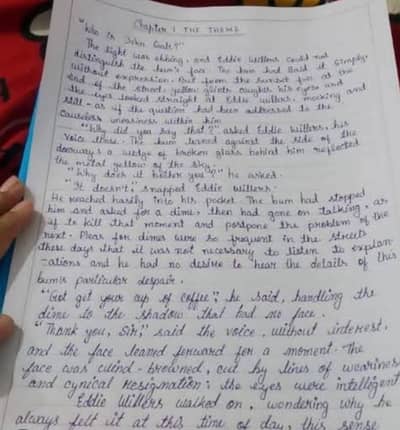 Chapter 1 THE THEME
"Who is John Galt?"
The light was ebbing, and Eddie Willers could not
distinguish the bum's face. The bum had said it simply,
without expression. But from the sunset far at the
end of the street, yellow glints caught his eyes and
the eyes looked straight at Eddie Willers, mocking and
still - as if the question had been addressed to the
causeless uneasiness within him
"Why did you say that?" asked Eddie Willers, his
voice tense. The bum leaned against the side of the
doorway; a wedge of broken glass behind him reflected
the metal yellow of the sky.
"Why does it bother you?" he asked.
"It doesn't", snapped Eddie Willers.
He reached hastily into his pocket. The bum had stopped
him and asked for a dime, then had gone on talking, as
if to kill that moment and postpone the problem of the
next. Pleas for dimes were so frequent in the streets
these days that it was not necessary to listen to explan
-ations and he had no desire to hear the details of this
bum's particular despair.
"Go get your cup of coffee", he said, handling the
dime to the shadow that had no face.
"Thank you, Sir," said the voice, without interest,
and the face leaned forward for a moment. The
face was wind-browned, cut by lines of weariness
and cynical resignation; the eyes were intelligent
Eddie Willers walked on, wondering why he
always felt it at this time of day, this sense